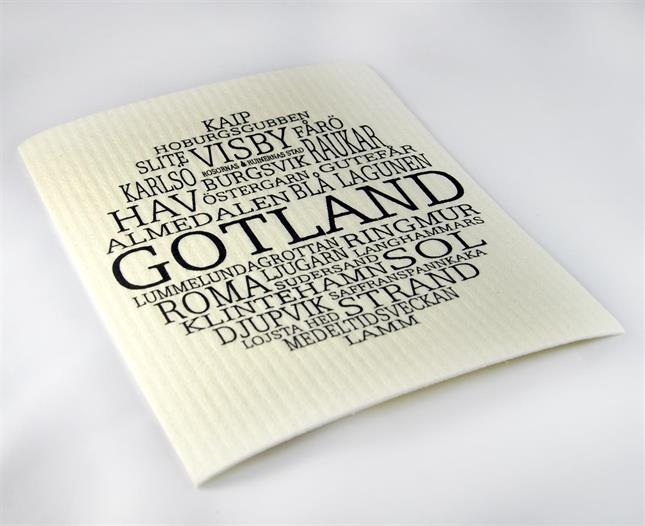 KAJP
HOBURGSGUBBEN
SLITE VISBY FÅRÖ
ROSORNAS & RUINERNAS STAD
KARLSÖ BURGSVIK RAUKAR
HAV ÖSTERGARN GUTEFÅR
ALMEDALEN BLÅ LAGUNEN
GOTLAND
LUMMELUNDAGROTTAN RINGMUR
ROMA LJUGARN LANGHAMMARS
SUDERSAND SOL
KLINTEHAMN SAFFRANSPANNKAKA
DJUPVIK STRAND
LOJSTA HED
MEDELTIDSVECKAN
LAMM